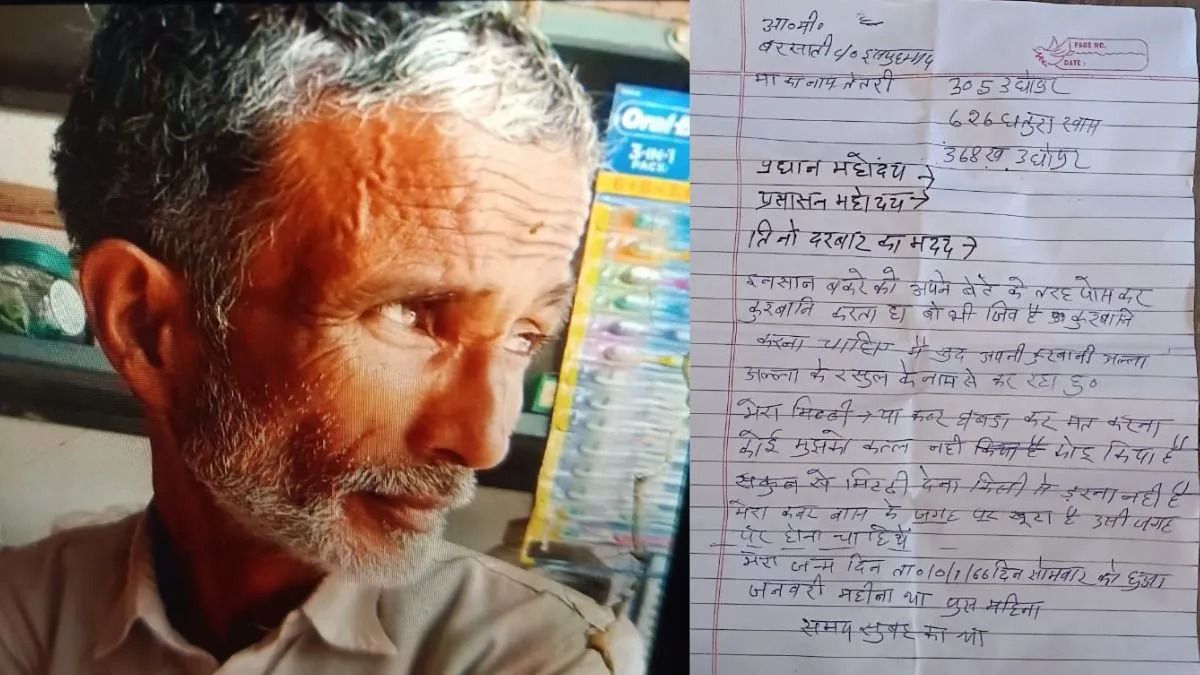 Oral-B
3-IN-1
PACK
PAGE NO.
DATE :
आ०मी०
बरसाती c/o
मा का नाम तेतरी
305 उधोपुर
626 धतुरा खाम
368ख उधोपुर
प्रधान महोदय →
प्रसासन महोदय →
तिनो दरबार का मदद →
इनसान बकरे को अपने बेटे के तरह पोस कर
कुरबानि करता है वो भी जिव है कुरबानि
करना चाहिए मै खुद अपनी कुरबानी अल्ला
अल्ला के रसुल के नाम से कर रहा हु०
मेरा मिटटी → या कबर घबड़ा कर मत करना
कोई मुझको कत्ल नही किया है कोइ किया है
सकुन से मिटटी देना किसी से डरना नही है
मेरा कबर बास के जगह पर खूटा है उसी जगह
पर होना चाहिये
मेरा जन्म दिन ता०/0/1/66 दिन सोमवार को हुआ
जनवरी महीना था पुस महिना
समय सुबह का था